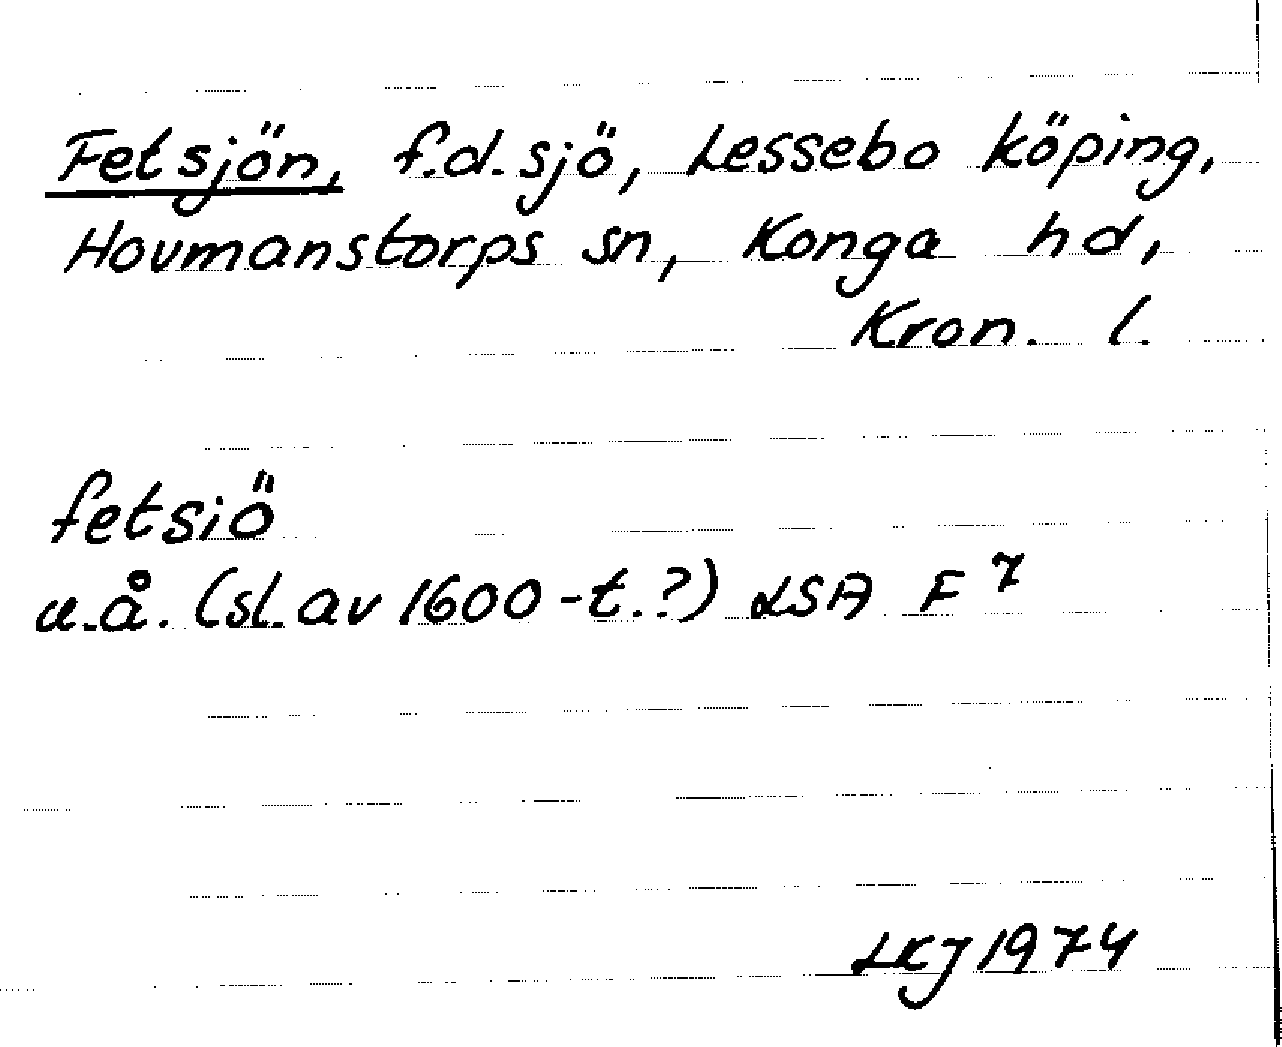 Fetsjön, f.d. sjö, Lessebo köping,
Hovmanstorps sn, Konga hd,
Kron. l.
fetsiö
u.å. (sl. av 1600-t.?) LSA F 7
LKJ 1974